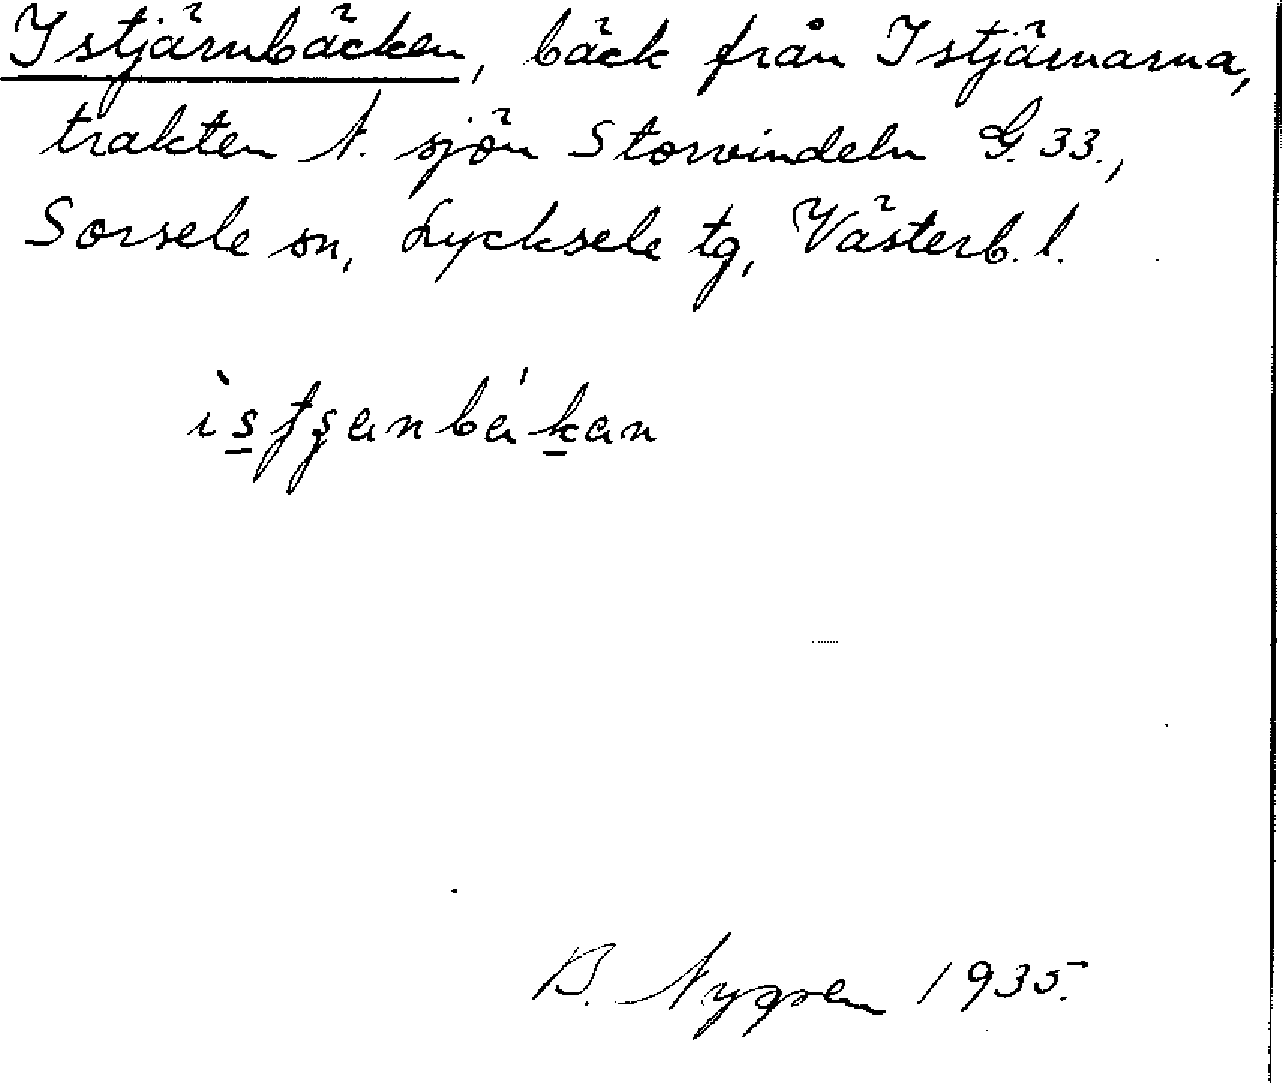 Istjärnbäcken, bäck från Istjärnarna,
trakten N. sjön Storvindeln G. 33.,
Sorsele sn, Lycksele tg, Västerb. l.
B. Nygren 1935.